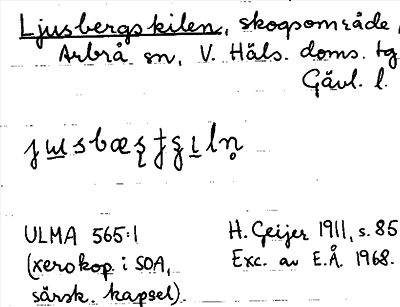 Ljusbergskilen, skogsområde,
Arbrå sn, V. Häls. doms. tg
Gävl. l.
ULMA 565:1
(xerokop i SOA,
särsk. kapsel).
H. Geijer 1911, s. 85
Exc. av E.Å. 1968.